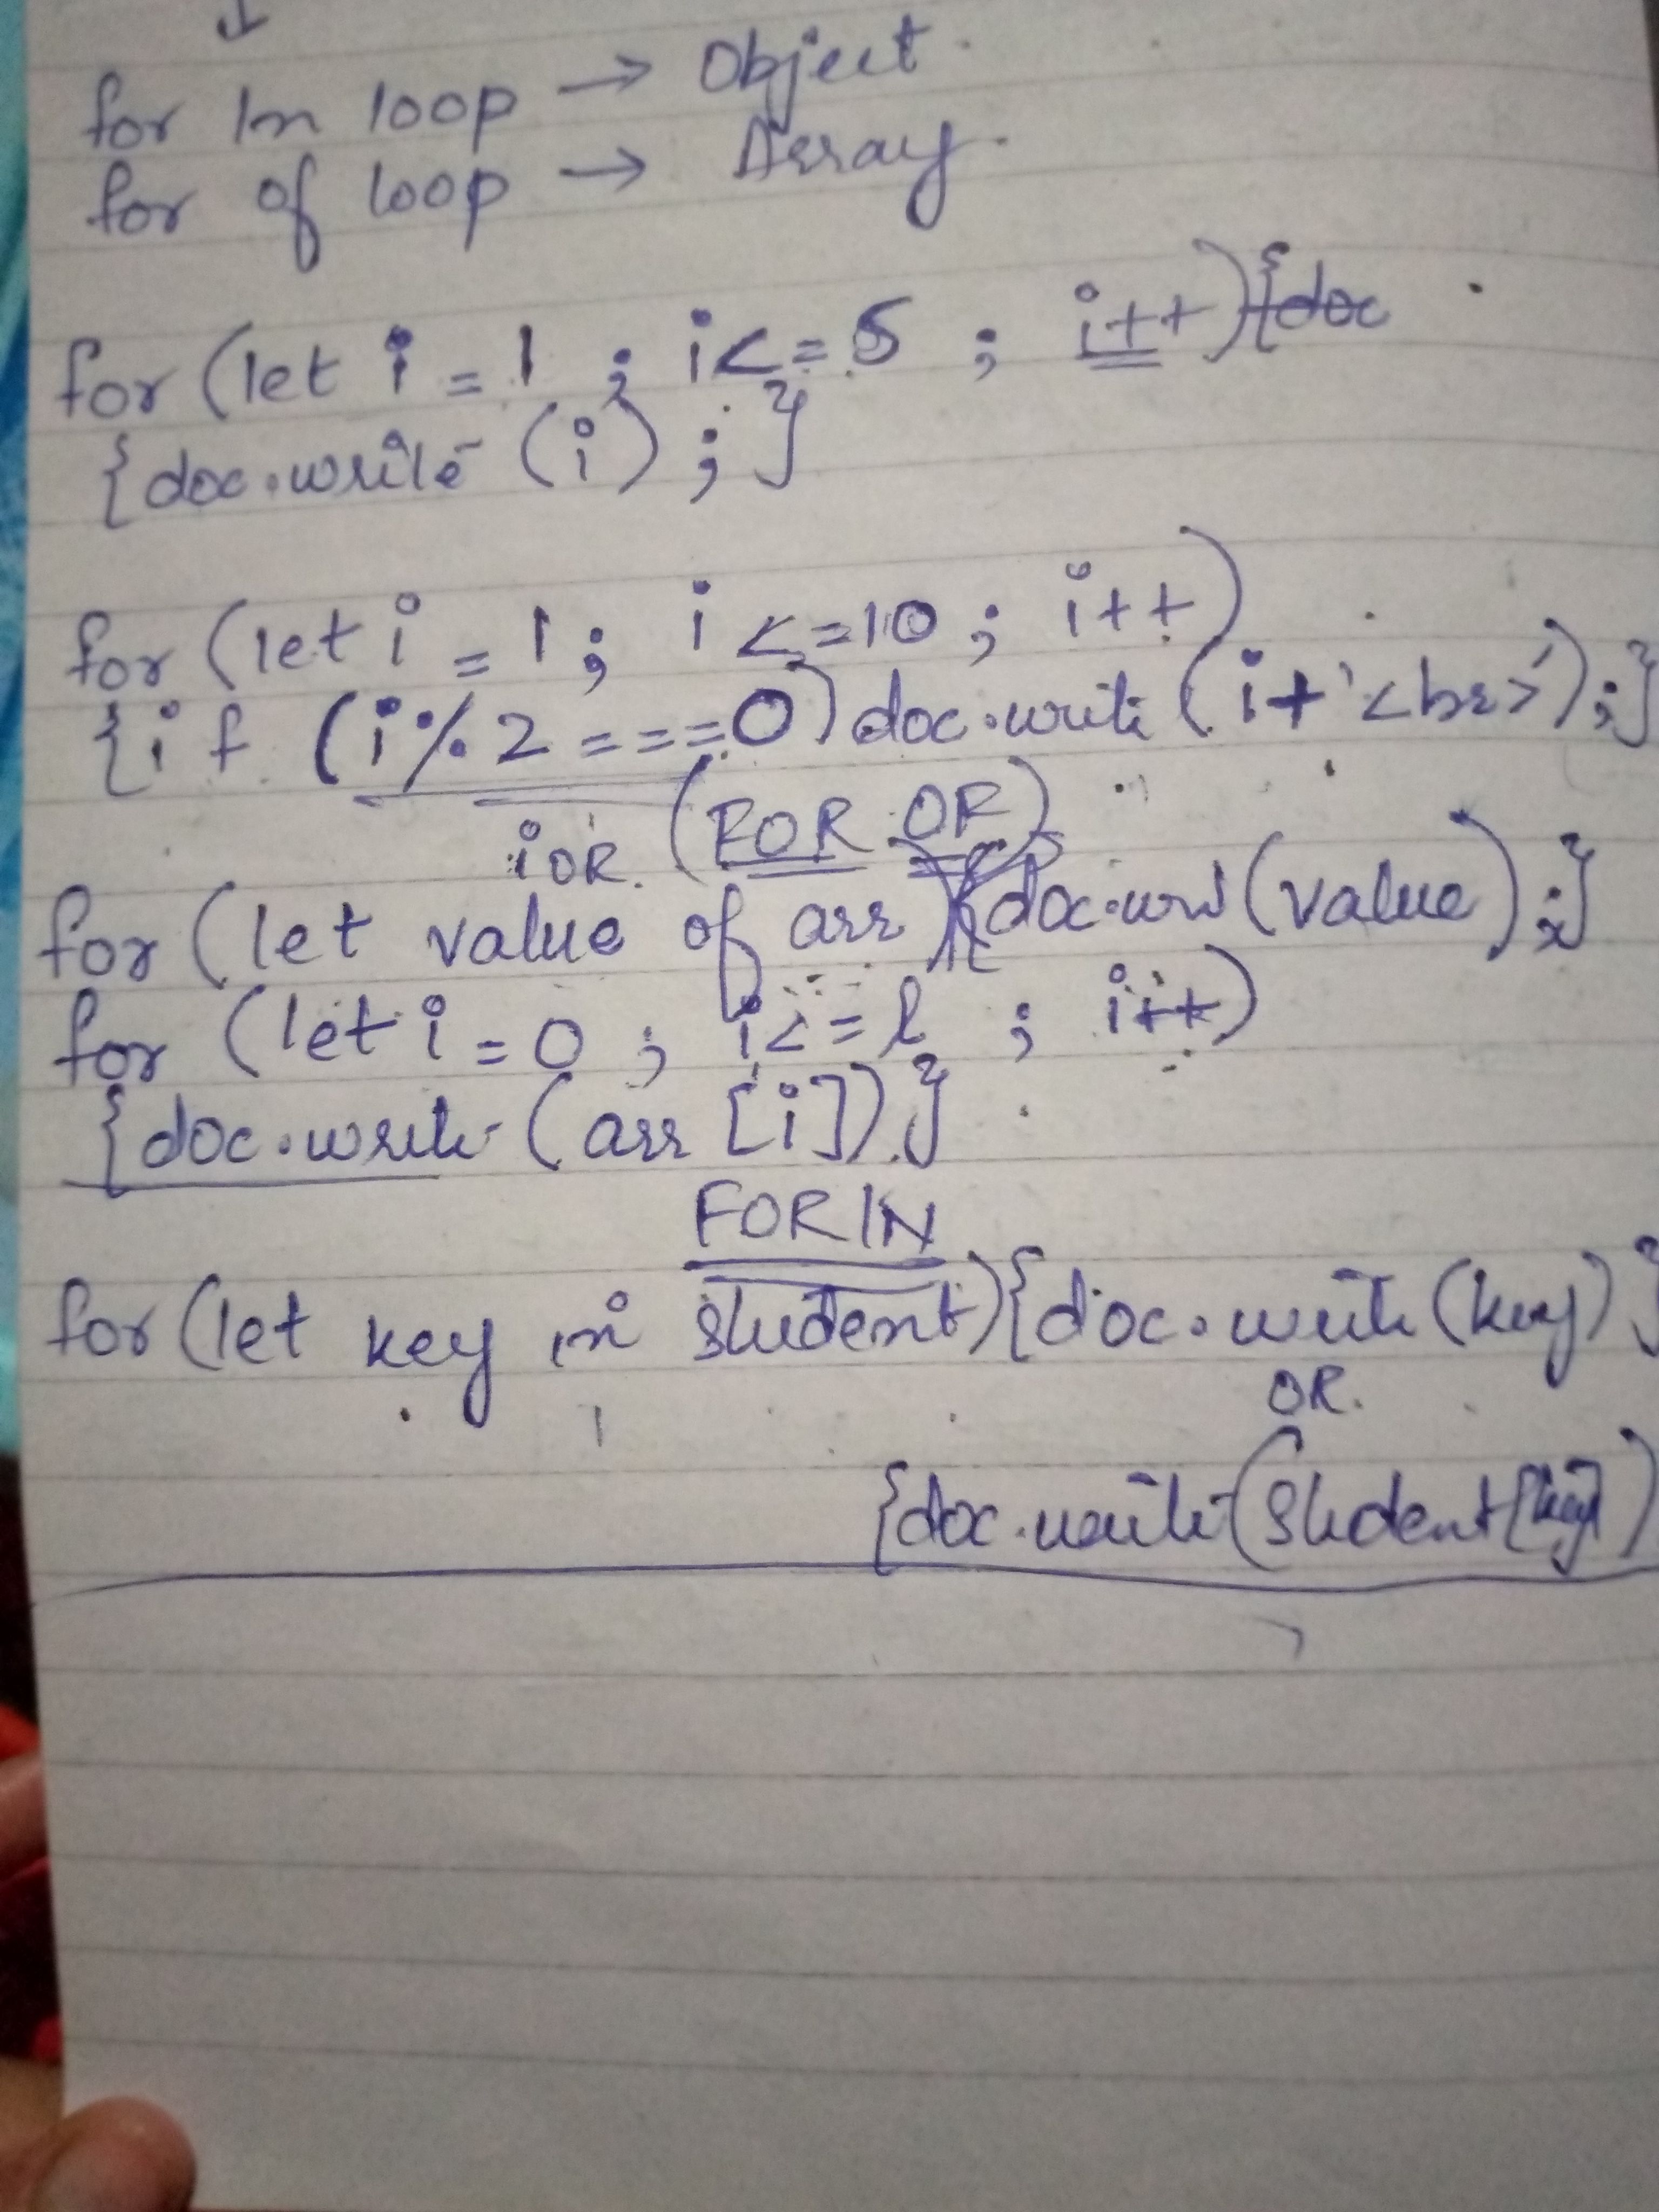 for In loop → Object
for of loop → Array
for (let i = 1 ; i <= 5 ; i++) {doc
{doc.write (i) ; }
for (let i = 1 ; i <= 10 ; i++)
{if (i % 2 === 0) doc.write (i + '<br>') ; }
OR. (FOR OF)
for (let value of arr) {doc.wri (value) ; }
for (let i = 0 ; i <= l ; i++)
{doc.write (arr [i]) }
FOR IN
for (let key in student) {doc.write (key) }
OR.
{doc.write (student [key])